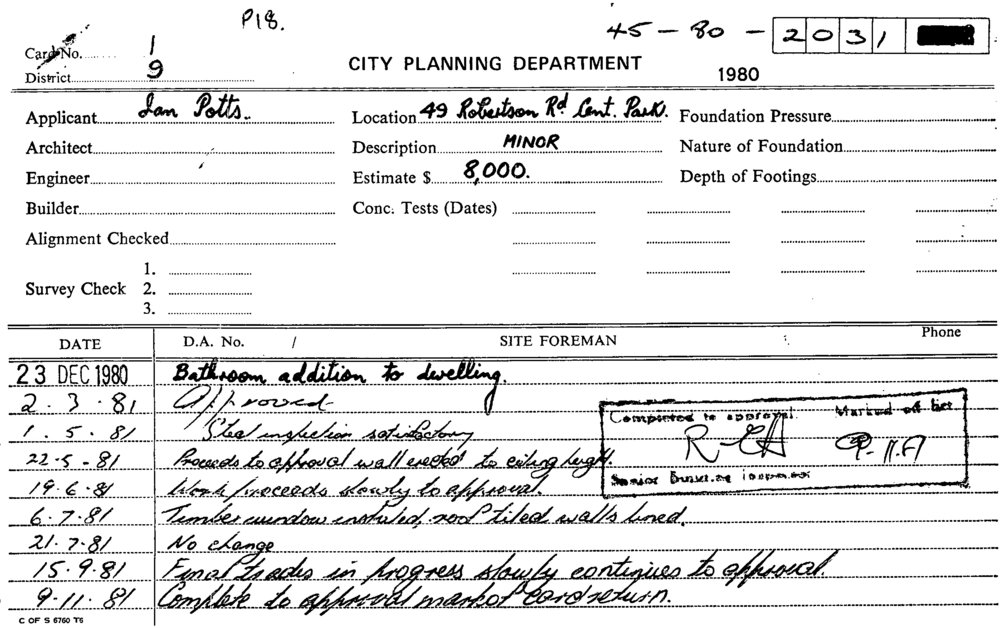 P18.
45 - 80 - 2031
Card No. 1
District 9
CITY PLANNING DEPARTMENT
1980
Applicant Ian Potts.
Location 49 Robertson Rd Cent. Park.
Foundation Pressure
Architect
Description MINOR
Nature of Foundation
Engineer
Estimate $ 8,000.
Depth of Footings
Builder
Conc. Tests (Dates)
Alignment Checked
1.
Survey Check 2.
3.
DATE D.A. No. / SITE FOREMAN Phone
23 DEC 1980 Bathroom addition to dwelling.
2.3.81 Approved
1.5.81 Steel inspection satisfactory
22-5-81 Proceeds to approval wall erected to ceiling height.
19.6.81 Work proceeds slowly to approval.
6.7.81 Timber window installed, roof tiled walls lined.
21.7.81 No change
15.9.81 Final trades in progress slowly continues to approval.
9.11.81 Complete to approval mark of card return.
Completed to approval. Marked off list
Senior Building Inspector
C OF S 6760 T6